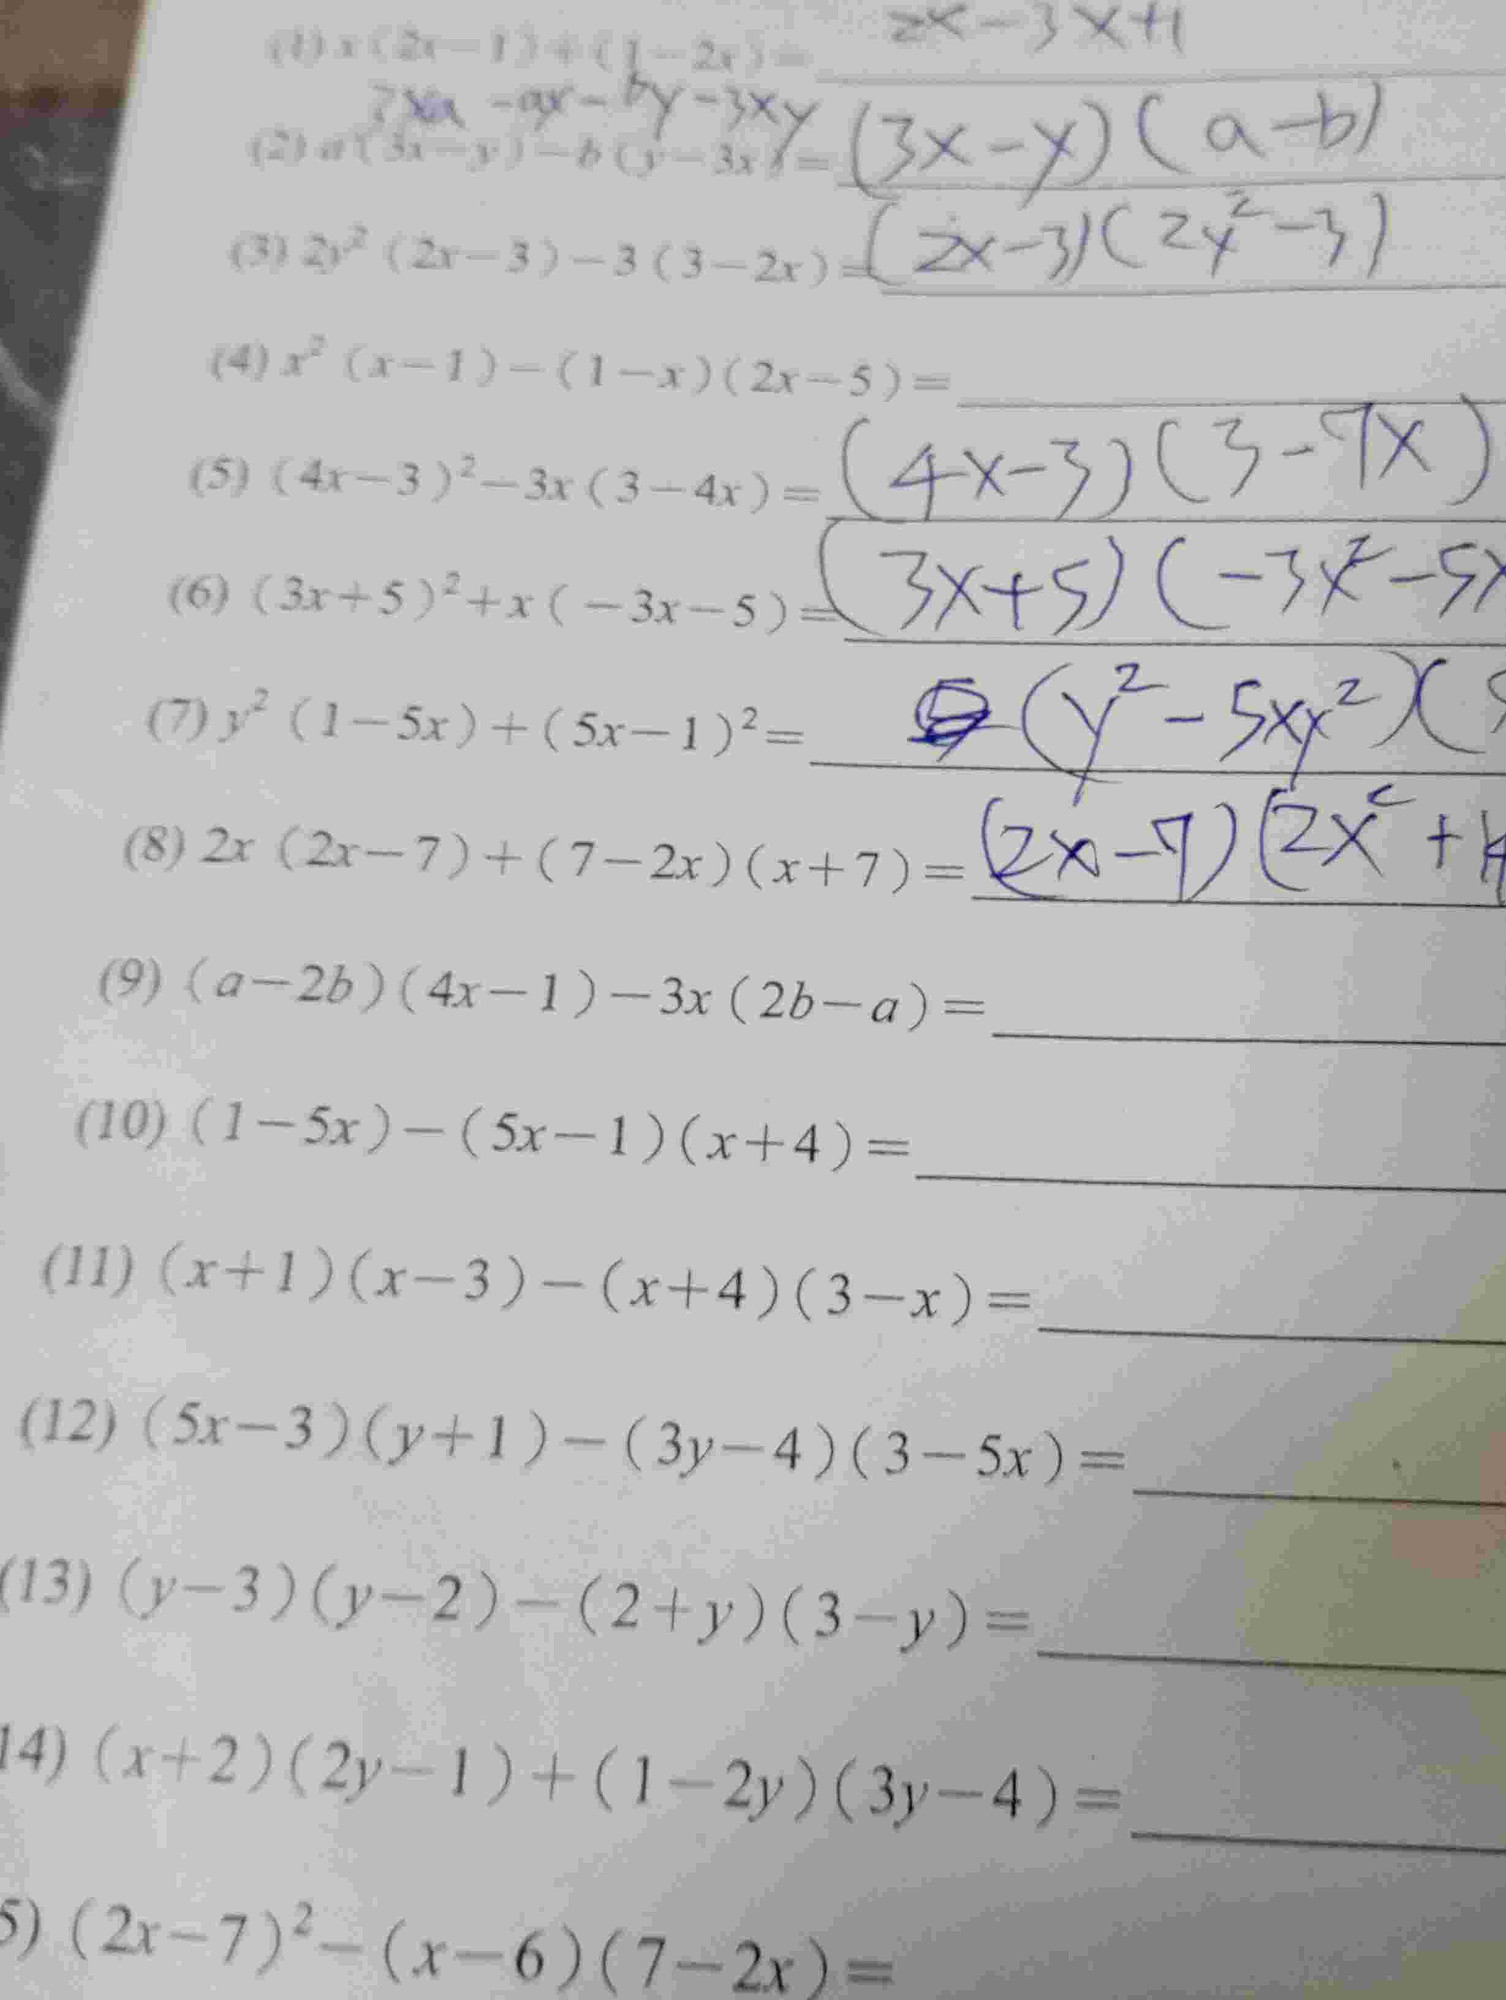 (1) x(2x-1)+(1-2x)= 2x-3x+1
3xa -ax- by-3xy
(2) a(3x-y)-b(y-3x)= (3x-y)(a-b)
(3) 2y²(2x-3)-3(3-2x)= (2x-3)(2y²-3)
(4) x²(x-1)-(1-x)(2x-5)=
(5) (4x-3)²-3x(3-4x)= (4x-3)(3-7x)
(6) (3x+5)²+x(-3x-5)= (3x+5)(-3x²-5x
(7) y²(1-5x)+(5x-1)²= (y²-5xy²)(5
(8) 2x(2x-7)+(7-2x)(x+7)= (2x-7)(2x²+14
(9) (a-2b)(4x-1)-3x(2b-a)=
(10) (1-5x)-(5x-1)(x+4)=
(11) (x+1)(x-3)-(x+4)(3-x)=
(12) (5x-3)(y+1)-(3y-4)(3-5x)=
(13) (y-3)(y-2)-(2+y)(3-y)=
14) (x+2)(2y-1)+(1-2y)(3y-4)=
5) (2x-7)²-(x-6)(7-2x)=